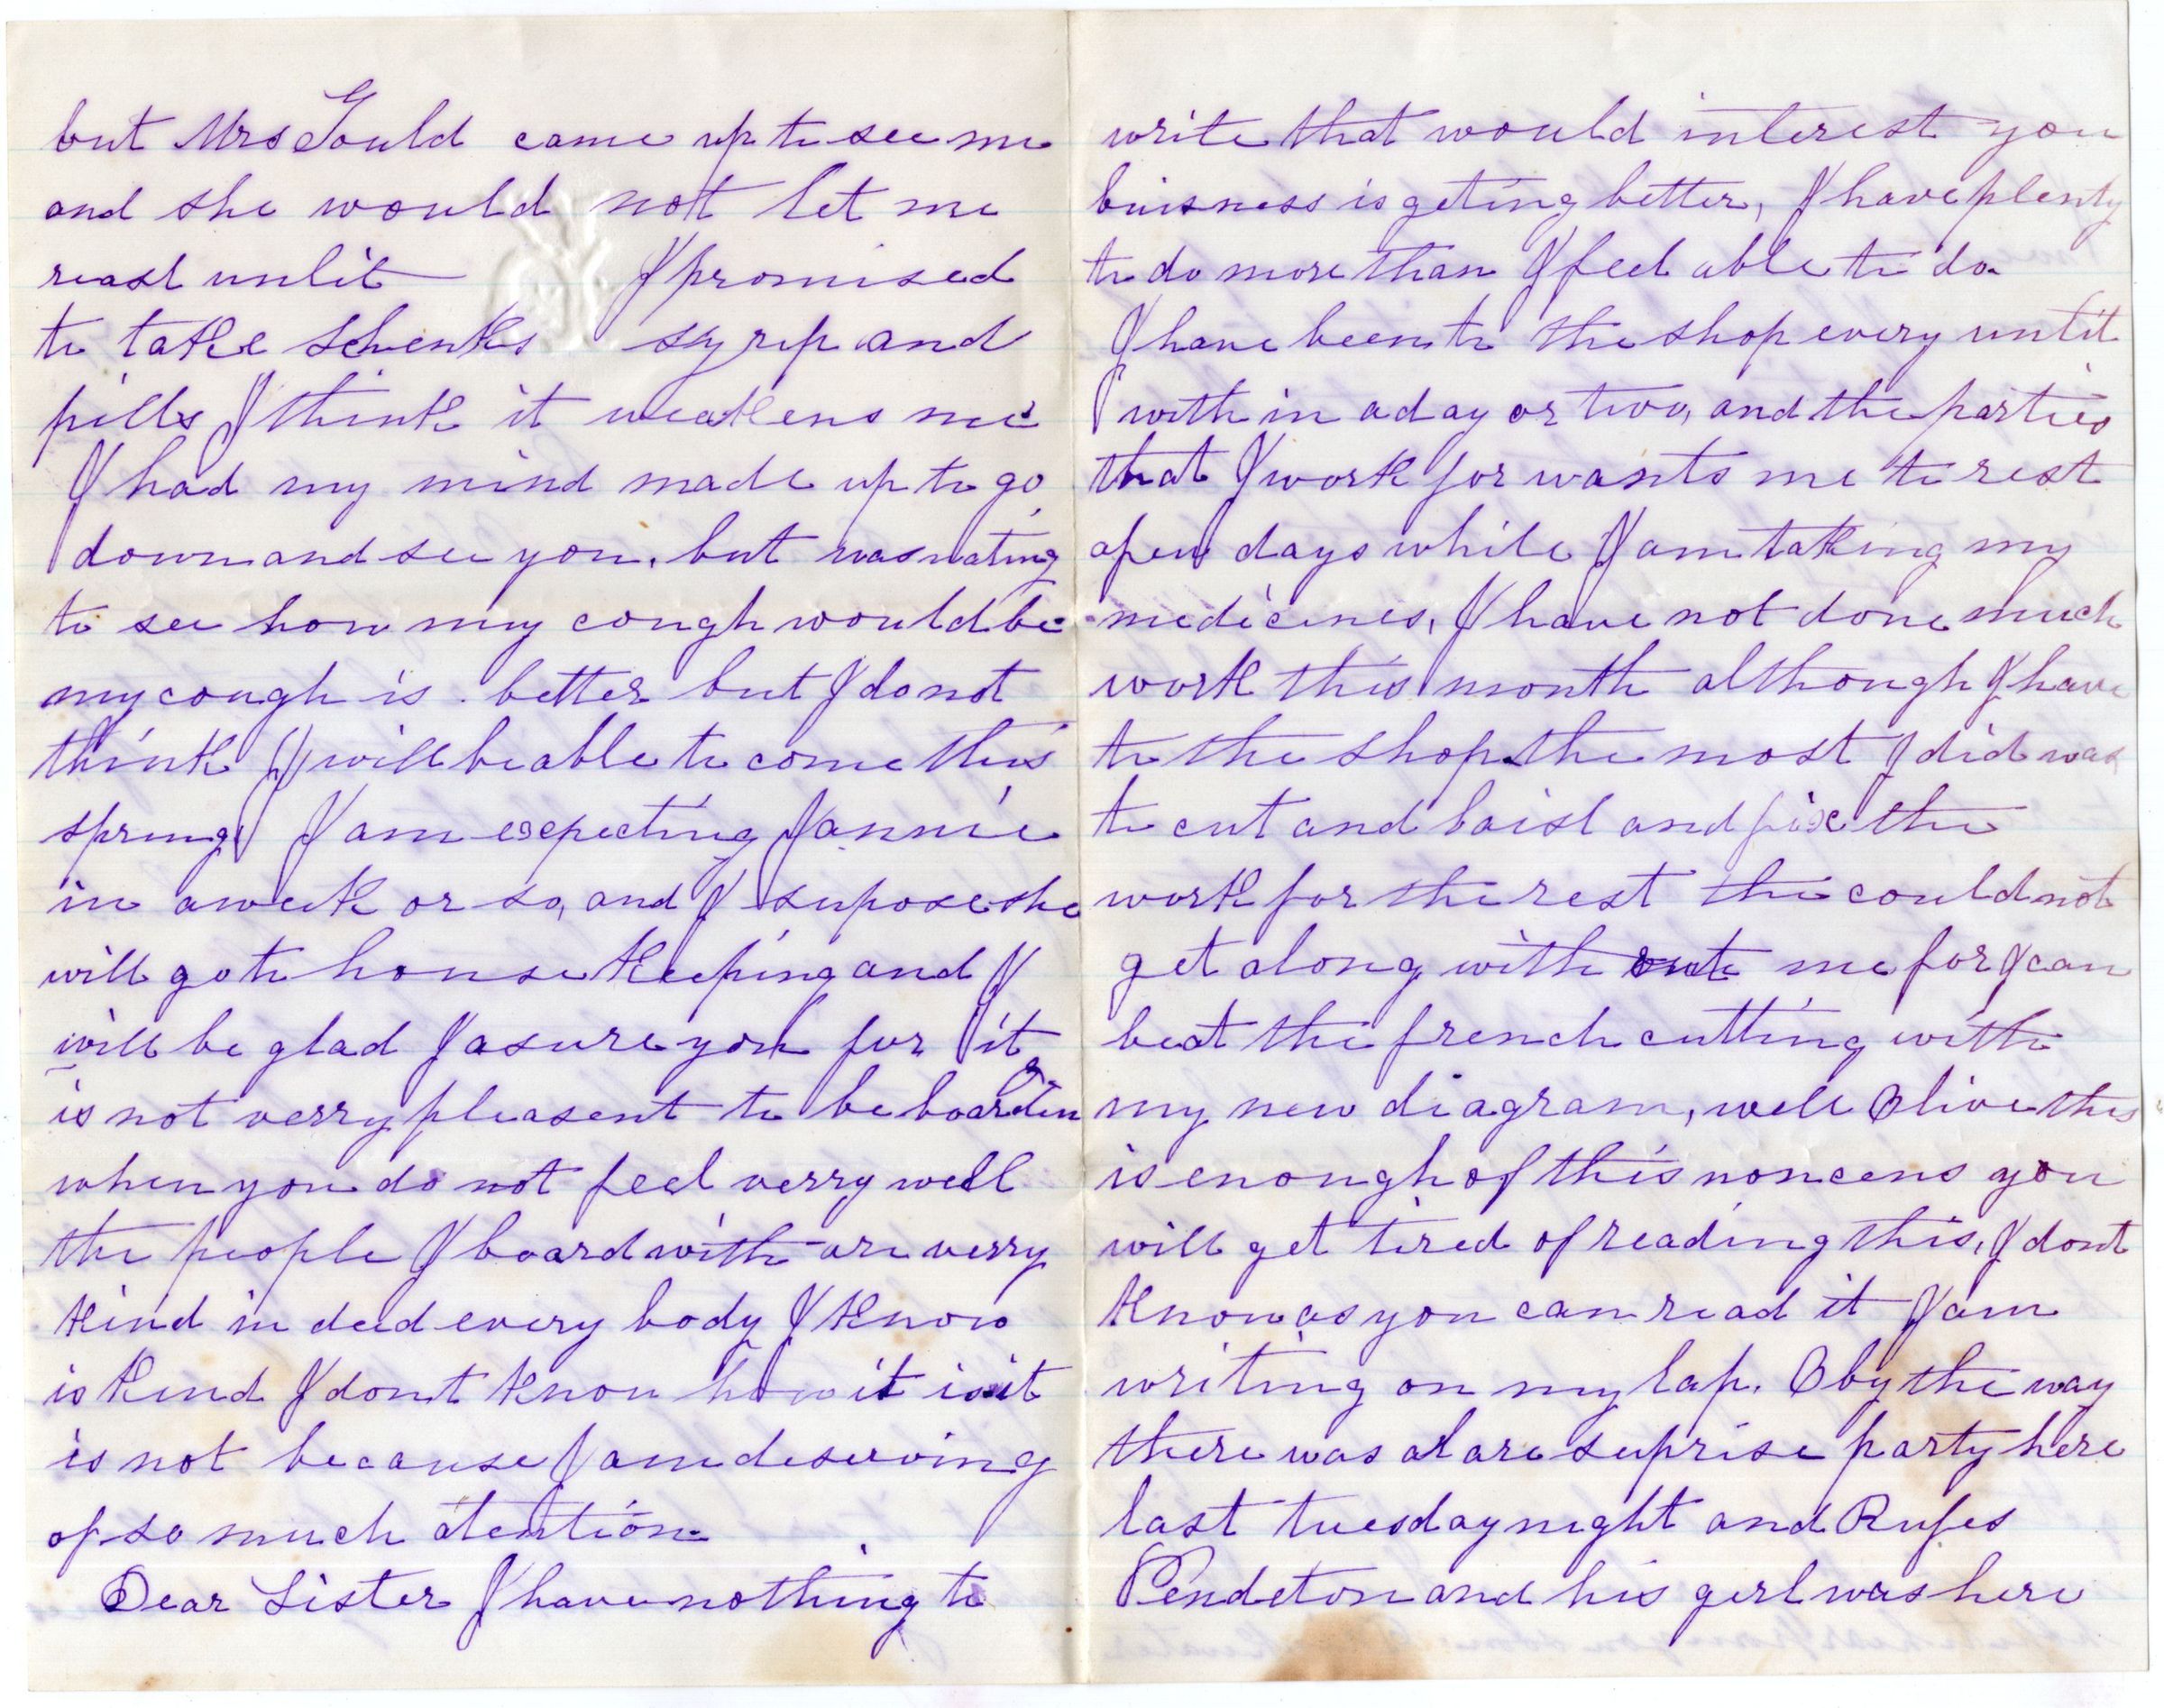 but Mrs Gould came up to see me
and she would not let me
reast untit I promised
to take Schenks syrup and
pills I think it weakens me
I had my mind made up to go
down and see you, but was wating
to see how my cough would be
my cough is better but I do not
think I will be able to come this
spring I am expecting Jannie
in a week or so, and I supose she
will go to house keeping and I
will be glad I asure you for it
is not verry pleasent to be boarden
when you do not feel verry well
the people I board with are verry
kind in deed every body I know
is kind I dont know how it is it
is not because I am deserving
of so much atention
Dear Sister I have nothing to
write that would interest you
buisness is geting better, I have plenty
to do more than I feel able to do
I have been to the shop every until
with in a day or two, and the parties
that I work for wants me to rest
a few days while I am taking my
medicines, I have not done much
work this month although I have
to the shop the most I did was
to cut and baist and fix the
work for the rest the could not
get along with out me for I can
beat the french cutting with
my new diagram, well Olive this
is enough of this noncens you
will get tired of reading this, I dont
know as you can read it I am
writing on my lap. O by the way
there was a suprise party here
last tuesday night and Rufes
Pendeton and his girl was here